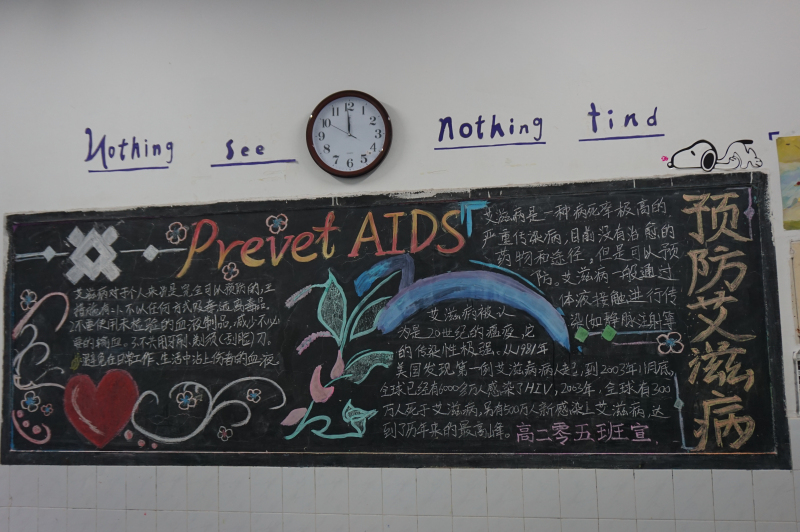 Nothing see nothing tind
Prevet AIDS
预防艾滋病
艾滋病对于个人来讲是完全可以预防的,主
不要使用未检验的血液制品,减少不必
要的输血。3.不共用牙刷、剃须(刮脸)刀。
避免在日常工作、生活中沾上伤者的血液。
艾滋病是一种病死率极高的
严重传染病,目前没有治愈的
药物和途径,但是可以预
防。艾滋病一般通过
体液接触进行传
染(如静脉注射等
艾滋病被认
为是20世纪的瘟疫,它
的传染性极强。从1981年
美国发现第一例艾滋病病人起,到2003年11月底,
全球已经有6000多万人感染了HIV,2003年,全球有300
万人死于艾滋病,另有500万人新感染上艾滋病,达
到了历年来的最高峰。
高二零五班宣